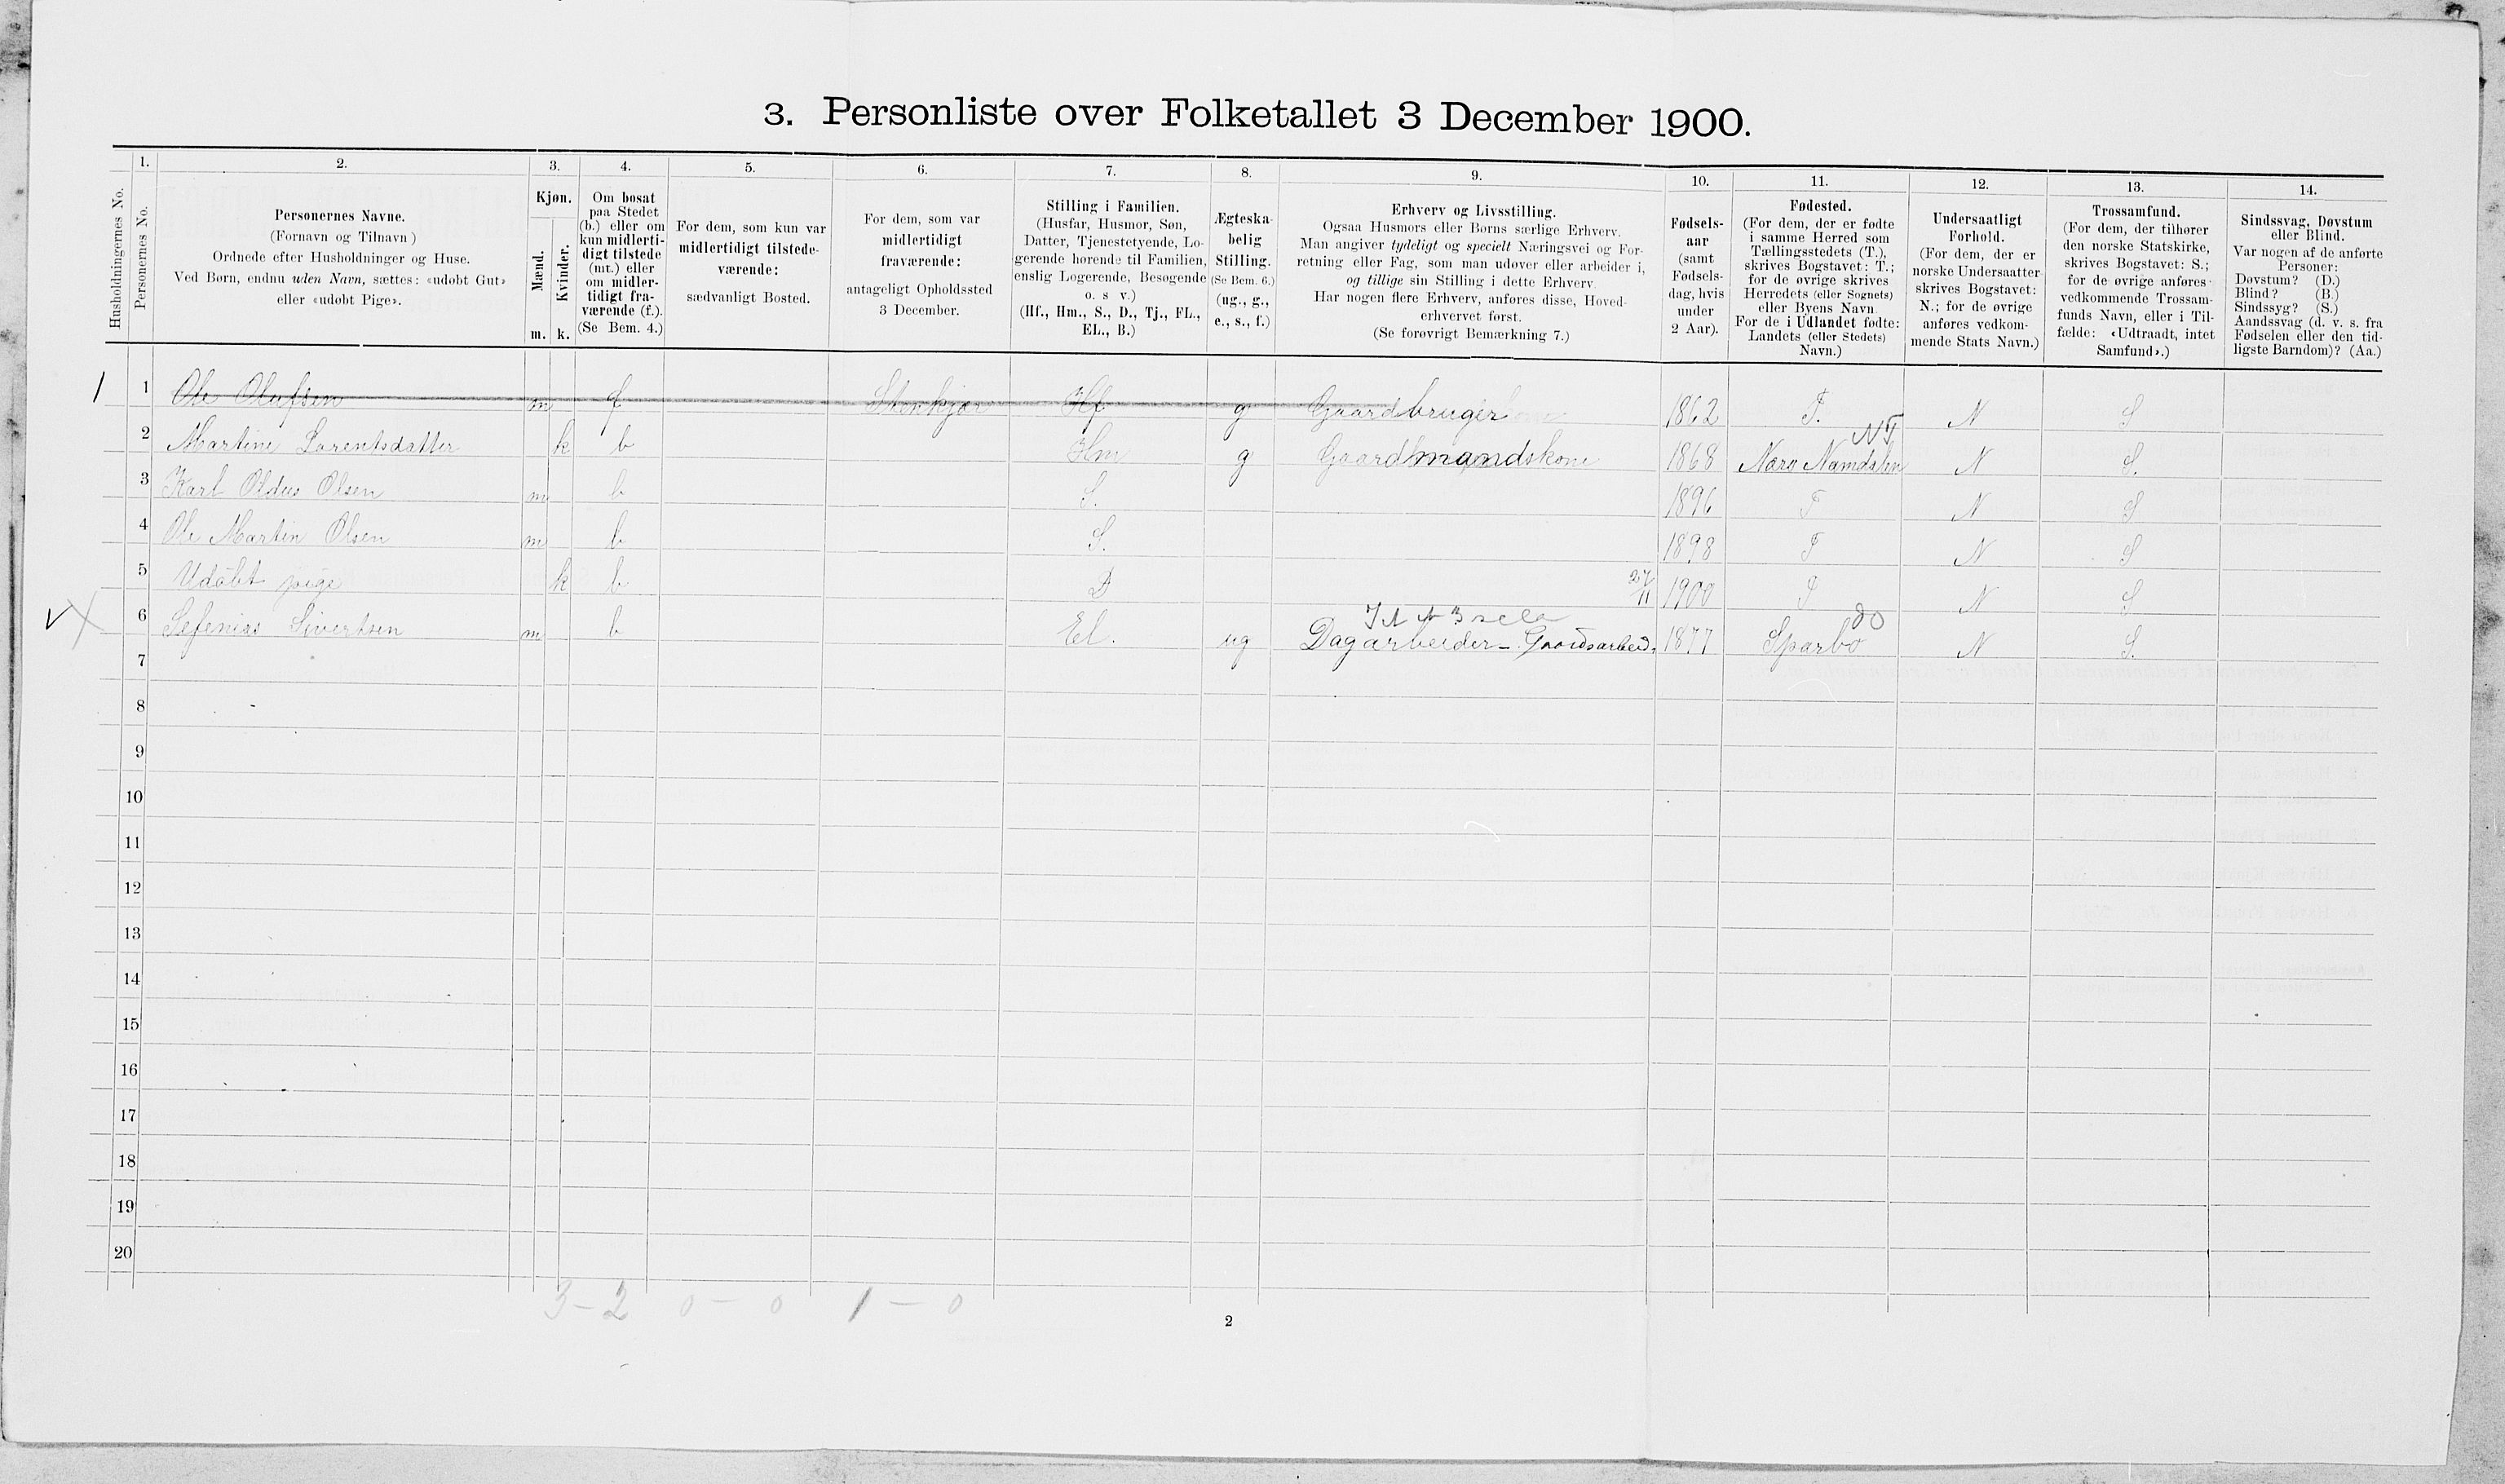 3. Personliste over Folketallet 3 December 1900.
1. 2. 3. 4. 5. 6. 7. 8. 9. 10. 11. 12. 13. 14.
Husholdningernes No.
Personernes No.
Personernes Navne.
(Fornavn og Tilnavn)
Ordnede efter Husholdninger og Huse.
Ved Børn, endnu uden Navn, sættes: «udøbt Gut»
eller «udøbt Pige».
Kjøn.
Mænd.
Kvinder.
m. k.
Om bosat
paa Stedet
(b.) eller om
kun midlerti-
digt tilstede
(mt.) eller
om midler-
tidigt fra-
værende (f.).
(Se Bem. 4.)
For dem, som kun var
midlertidigt tilstede-
værende:
sædvanligt Bosted.
For dem, som var
midlertidigt
fraværende:
antageligt Opholdssted
3 December.
Stilling i Familien.
(Husfar, Husmor, Søn,
Datter, Tjenestetyende, Lo-
gerende hørende til Familien,
enslig Logerende, Besøgende
o. s v.)
(Hf., Hm., S., D., Tj., FL.,
EL., B.)
Ægteska-
belig
Stilling.
(Se Bem. 6.)
(ug., g.,
e., s., f.)
Erhverv og Livsstilling.
Ogsaa Husmors eller Børns særlige Erhverv.
Man angiver tydeligt og specielt Næringsvei og For-
retning eller Fag, som man udøver eller arbeider i,
og tillige sin Stilling i dette Erhverv.
Har nogen flere Erhverv, anføres disse, Hoved-
erhvervet først.
(Se forøvrigt Bemærkning 7.)
Fødsels-
aar
(samt
Fødsels-
dag, hvis
under
2 Aar).
Fødested.
(For dem, der er fødte
i samme Herred som
Tællingsstedets (T.),
skrives Bogstavet: T.;
for de øvrige skrives
Herredets (eller Sognets)
eller Byens Navn
For de i Udlandet fødte:
Landets (eller Stedets)
Navn.)
Undersaatligt
Forhold.
(For dem, der er
norske Undersaatter
skrives Bogstavet:
N.; for de øvrige
anføres vedkom-
mende Stats Navn.)
Trossamfund.
(For dem, der tilhører
den norske Statskirke,
skrives Bogstavet: S.;
for de øvrige anføres
vedkommende Trossam-
funds Navn, eller i Til-
fælde: «Udtraadt, intet
Samfund».)
Sindssvag, Døvstum
eller Blind.
Var nogen af de anførte
Personer:
Døvstum? (D.)
Blind? (B.)
Sindssyg? (S.)
Aandssvag (d. v. s. fra
Fødselen eller den tid-
ligste Barndom)? (Aa.)
1 1 Ole Olufsen m f Stenkjær Hf g Gaardbruger 1862 T. N S
NT
2 Martine Lorentsdatter k b Hm g Gaardmandskone 1868 Nærø Namdalen N S.
3 Karl Oldus Olsen m b S. 1896 T N S
4 Ole Martin Olsen m b S. 1898 T N S
5 Udöbt pige k b D 27/11 1900 T N S
do
6 Sefenias Sivertsen m b El. ug Dagarbeider - Gaardsarbeid. 1877 Sparbo N S.
7
8
9
10
11
12
13
14
15
16
17
18
19
20
3 — 2 0 — 0 1 — 0
2